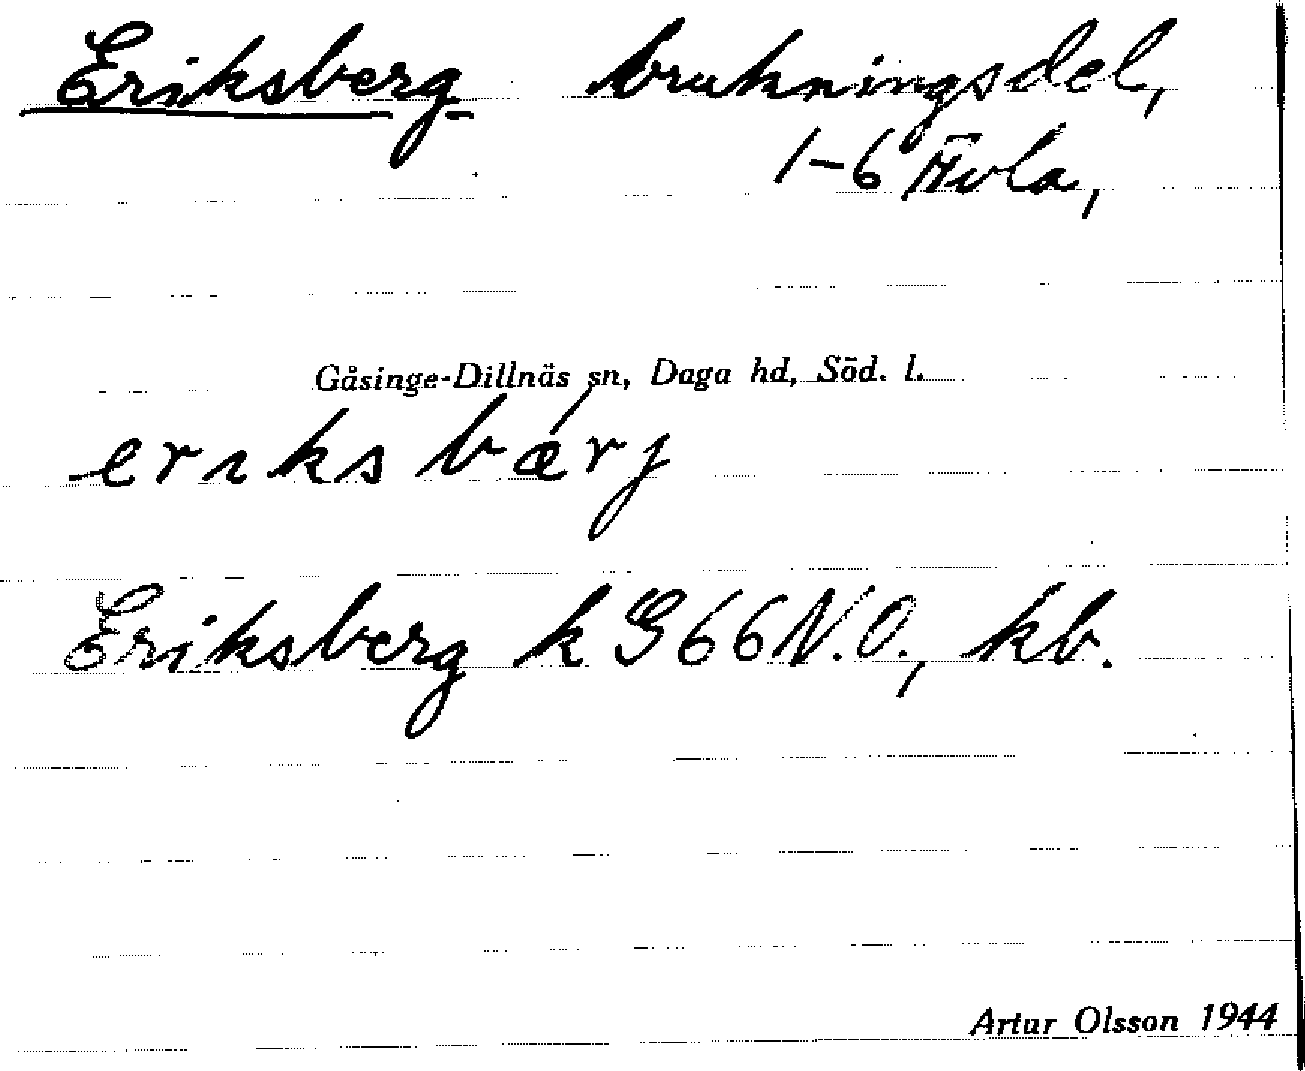 Eriksberg brukningsdel,
1-6 Ävla,
Gåsinge-Dillnäs sn, Daga hd, Söd. l.
eriksbærj
Eriksberg k G66N.O., kb.
Artur Olsson 1944